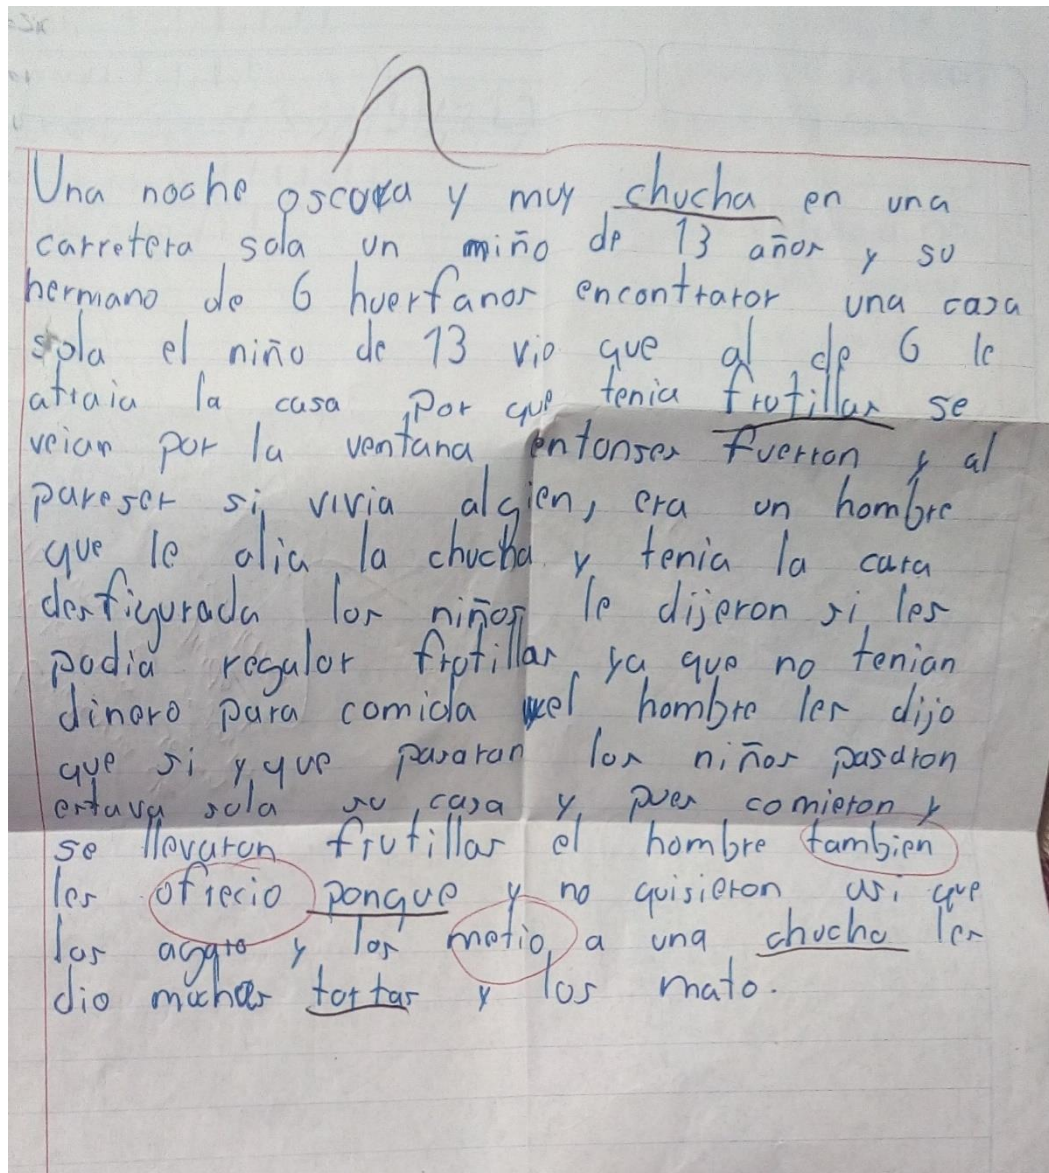 Una noche oscora y muy chucha en una
carretera sola un miño de 13 años y su
hermano de 6 huerfanos encontraror una casa
sola el niño de 13 vio que al de 6 le
attraia la casa por que tenia frutillas se
veian por la ventana entonses fuerron y al
pareser si vivia algien, era un hombre
que le olia la chucha y tenia la cara
desfigurada los niños le dijeron si les
podia regalar frutillas ya que no tenian
dinero para comida el hombre les dijo
que si y que pasaran los niños pasaron
estava sola su casa y pues comieron y
se llevaron frutillas el hombre tambien
les ofrecio ponque y no quisieron asi que
los agaro y los metio a una chucha les
dio muchas tortas y los mato.